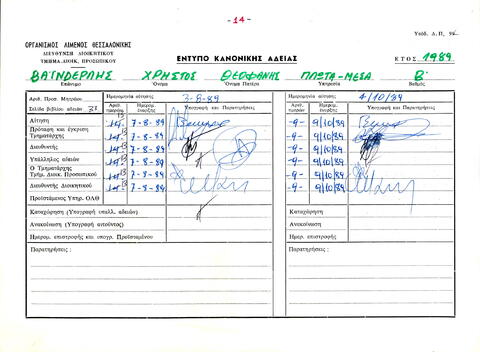 - 14 -
Υπόδ. Δ.Π.
ΟΡΓΑΝΙΣΜΟΣ ΛΙΜΕΝΟΣ ΘΕΣΣΑΛΟΝΙΚΗΣ
ΔΙΕΥΘΥΝΣΗ ΔΙΟΙΚΗΤΙΚΟΥ
ΤΜΗΜΑ ΔΙΟΙΚ. ΠΡΟΣΩΠΙΚΟΥ
ΕΝΤΥΠΟ ΚΑΝΟΝΙΚΗΣ ΑΔΕΙΑΣ
ΕΤΟΣ 1989
ΒΑΪΝΔΕΡΛΗΣ ΧΡΗΣΤΟΣ ΘΕΟΦΑΝΗΣ ΠΛΩΤΑ-ΜΕΣΑ Β'
Επώνυμο Όνομα Όνομα Πατέρα Υπηρεσία Βαθμός
Αριθ. Προσ. Μητρώου
Ημερομηνία αίτησης 3-8-89
Ημερομηνία αίτησης 4/10/89
Σελίδα βιβλίου αδειών 31
Αριθ. ημερών Ημερομ. έναρξης Υπογραφή και Παρατηρήσεις
Αριθ. ημερών Ημερομ. έναρξης Υπογραφή και Παρατηρήσεις
Αίτηση 7-8-89 -9- 9/10/89
Πρόταση και έγκριση Τμηματάρχης 7-8-89 -9- 9/10/89
Διευθυντής 7-8-89 -9- 9/10/89
Υπάλληλος αδειών 7-8-89 -9- 9/10/89
Ο Τμηματάρχης
Τμήμ. Διοικ. Προσωπικού 7-8-89 -9- 9/10/89
Διευθυντής Διοικητικού 7-8-89 -9- 9/10/89
Προϊστάμενος Υπηρ. ΟΛΘ
Καταχώρηση (Υπογραφή υπαλλ. αδειών) Καταχώρηση
Ανακοίνωση (Υπογραφή αιτούντος) Ανακοίνωση
Ημερομ. επιστροφής και υπογρ. Προϊσταμένου Ημερομ. επιστροφής
Παρατηρήσεις : Παρατηρήσεις :